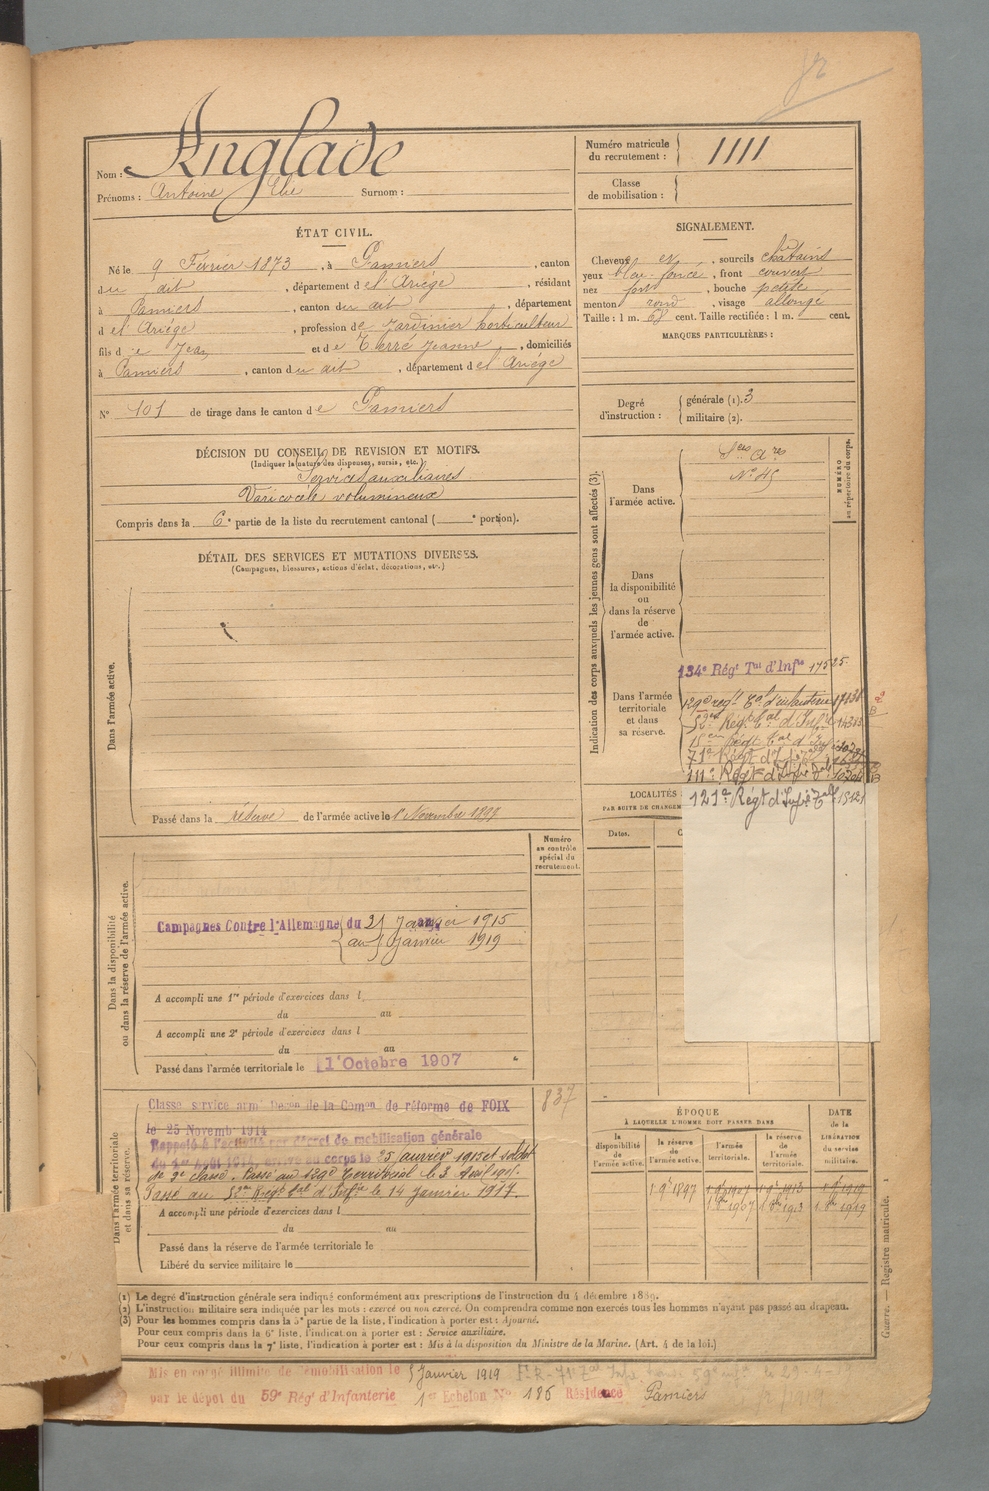 Nom : Anglade
Prénoms : Antoine Elie Surnom :
Numéro matricule du recrutement : 1111
Classe de mobilisation :
ÉTAT CIVIL.
Né le 9 Février 1873, à Pamiers, canton
du dit, département de l'Ariège, résidant
à Pamiers, canton du dit, département
de l'Ariège, profession de Jardinier horticulteur
fils de Jean et de Terré Jeanne, domiciliés
à Pamiers, canton du dit, département de l'Ariège
N° 101 de tirage dans le canton de Pamiers
SIGNALEMENT.
Cheveux et, sourcils châtains
yeux bleu-foncé, front couvert
nez fort, bouche petite
menton rond, visage allongé
Taille : 1 m. 68 cent. Taille rectifiée : 1 m. cent.
MARQUES PARTICULIÈRES :
Degré d'instruction : générale (1). 3
militaire (2).
DÉCISION DU CONSEIL DE REVISION ET MOTIFS.
(Indiquer la nature des dispenses, sursis, etc.)
Services auxiliaires
Varicocèle volumineux
Compris dans la 6e partie de la liste du recrutement cantonal ( e portion).
DÉTAIL DES SERVICES ET MUTATIONS DIVERSES.
(Campagnes, blessures, actions d'éclat, décorations, etc.)
Dans l'armée active.
Passé dans la réserve de l'armée active le 1er Novembre 1897
Indication des corps auxquels les jeunes gens sont affectés (3).
NUMÉRO au répertoire du corps.
Dans l'armée active.
Sces Ares
N° 45
Dans la disponibilité ou dans la réserve de l'armée active.
Dans l'armée territoriale et dans sa réserve.
134e Régt Tal d'Infie 17525.
129e regt Tal d'infanterie 17138
52e Régt Tal d'Infie 14313
71e Régt d'Infie Tale
111e Régt d'Infie Tale
121e Régt d'Infie Tale 15121
LOCALITÉS
PAR SUITE DE CHANGEM
Dates.
Dans la disponibilité ou dans la réserve de l'armée active.
Numéro au contrôle spécial du recrutement.
Campagnes Contre l'Allemagne du 25 Janvier 1915
au 5 Janvier 1919
A accompli une 1re période d'exercices dans l
du au
A accompli une 2e période d'exercices dans l
du au
Passé dans l'armée territoriale le 1er Octobre 1907
Dans l'armée territoriale et dans sa réserve.
837
Classe service armé Decon de la Comon de réforme de FOIX
le 25 Novemb 1914
Rappelé à l'activité par décret de mobilisation générale
du 1er Août 1914, arrivé au corps le 25 janvier 1915 et soldat
de 2e classe. Passé au 129e Territorial le 3 Août 1915.
Passé au 52e Régt Tal d'Infie le 14 Janvier 1917.
A accompli une période d'exercices dans l
du au
Passé dans la réserve de l'armée territoriale le
Libéré du service militaire le
ÉPOQUE
À LAQUELLE L'HOMME DOIT PASSER DANS
la disponibilité de l'armée active.
la réserve de l'armée active.
l'armée territoriale.
la réserve de l'armée territoriale.
DATE de la LIBÉRATION du service militaire.
1 9e 1897 1 9e 1907 1 9e 1913 1 9e 1919
1 8bre 1907 1 8bre 1913 1 8bre 1919
Guerre. — Registre matricule. 1
(1) Le degré d'instruction générale sera indiqué conformément aux prescriptions de l'instruction du 4 décembre 1889.
(2) L'instruction militaire sera indiquée par les mots : exercé ou non exercé. On comprendra comme non exercés tous les hommes n'ayant pas passé au drapeau.
(3) Pour les hommes compris dans la 5e partie de la liste, l'indication à porter est : Ajourné.
Pour ceux compris dans la 6e liste, l'indication à porter est : Service auxiliaire.
Pour ceux compris dans la 7e liste, l'indication à porter est : Mis à la disposition du Ministre de la Marine. (Art. 4 de la loi.)
Mis en congé illimité de démobilisation le 5 Janvier 1919
par le dépôt du 59e Régt d'Infanterie 1er Echelon N° 186 Résidence Pamiers